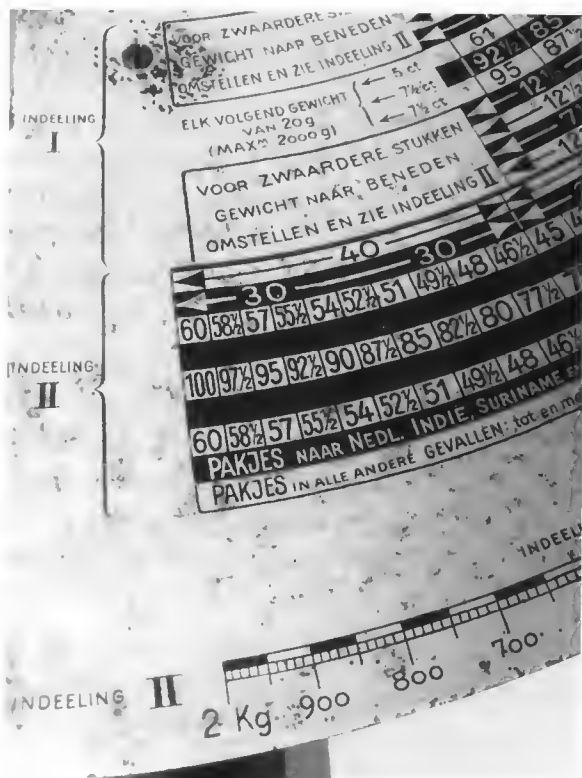 VOOR ZWAARDERE
GEWICHT NAAR BENEDEN
OMSTELLEN EN ZIE INDEELING II
61
92½ 85
95 87½
INDEELING
I
ELK VOLGEND GEWICHT
VAN 20g
(MAXM 2000g)
5 ct
7½ ct
7½ ct
12½
12½
VOOR ZWAARDERE STUKKEN
GEWICHT NAAR BENEDEN
OMSTELLEN EN ZIE INDEELING II
40
30 30
60 58½ 57 55½ 54 52½ 51 49½ 48 46½ 45
100 97½ 95 92½ 90 87½ 85 82½ 80 77½
INDEELING
II
60 58½ 57 55½ 54 52½ 51 49½ 48 46½
PAKJES NAAR NEDL. INDIE, SURINAME EN
PAKJES IN ALLE ANDERE GEVALLEN: tot en
INDEELING
INDEELING II
2 Kg 900 800 700